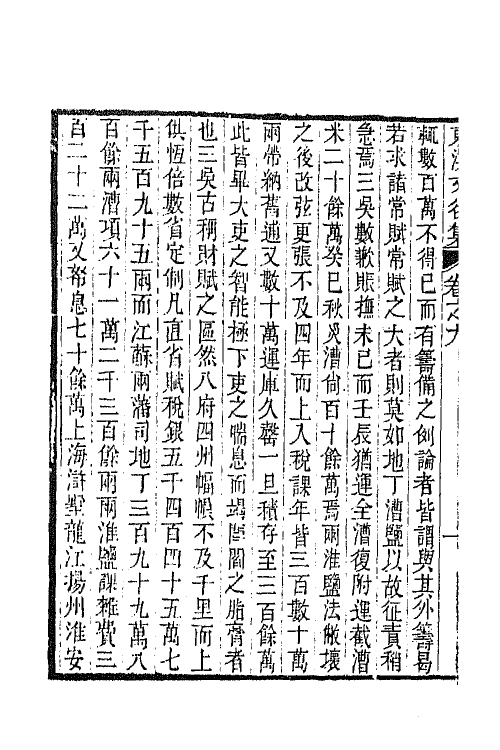 卷之九
輒數百萬不得已而有籌備之例論者皆謂與其外籌曷
若求諸常賦常賦之大者則莫如地丁漕鹽以故征責稍
急焉三吳數歉賬撫未已而壬辰猶運全漕復附運截漕
米二十餘萬癸巳秋災漕尙百十餘萬焉兩淮鹽法敝壞
之後改弦更張不及四年而上入稅課年皆三百數十萬
兩帶納舊逋又數十萬運庫久罄一旦積存至三百餘萬
此皆畢大吏之智能極下吏之喘息而竭閭閻之脂膏者
也三吳古稱財賦之區然八府四州幅幀不及千里而上
供恆倍數省定制凡直省賦稅銀五千四百四十五萬七
千五百九十五兩而江蘇兩藩司地丁三百九十九萬八
百餘兩漕項六十一萬二千三百餘兩兩淮鹽課雜費三
百二十二萬又帑息七十餘萬上海滸墅龍江揚州淮安